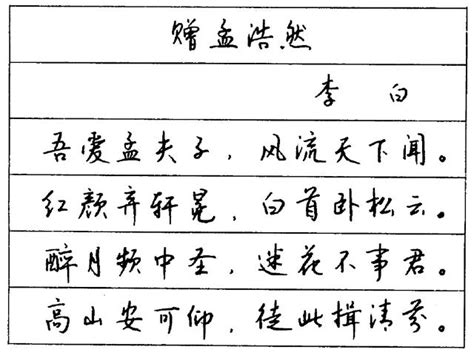 赠孟浩然
李白
吾爱孟夫子，风流天下闻。
红颜弃轩冕，白首卧松云。
醉月频中圣，迷花不事君。
高山安可仰，徒此揖清芬。